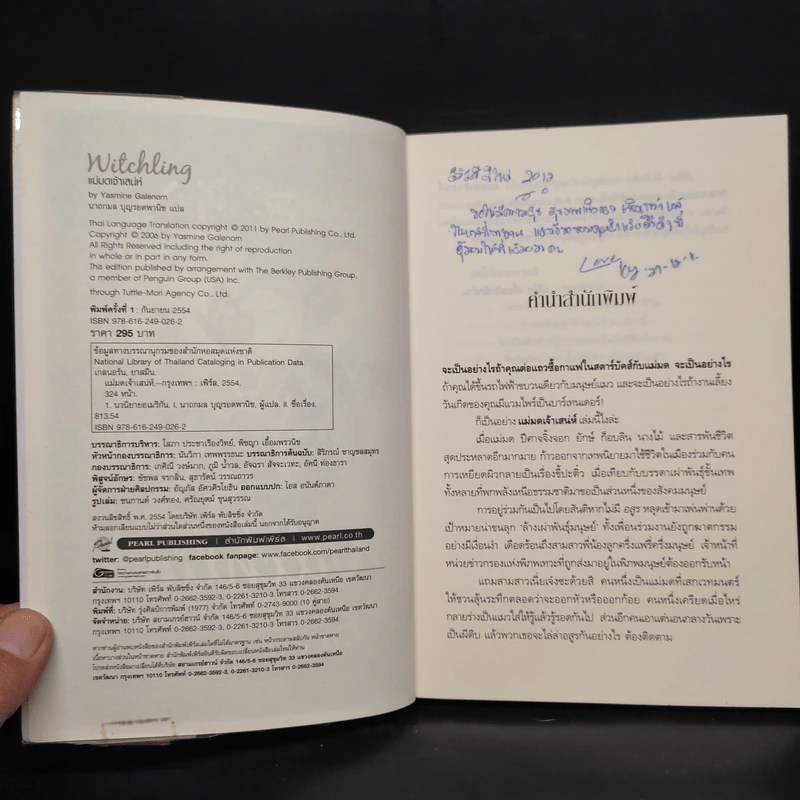 Witchling
แม่มดเจ้าเสน่ห์
by Yasmine Galenorn
นาถกมล บุญรอดพานิช แปล
Thai Language Translation copyright © 2011 by Pearl Publishing Co., Ltd.
Copyright © 2006 by Yasmine Galenorn
All Rights Reserved including the right of reproduction
in whole or in part in any form.
This edition published by arrangement with The Berkley Publishing Group,
a member of Penguin Group (USA) Inc.
through Tuttle-Mori Agency Co., Ltd.
พิมพ์ครั้งที่ 1 : กันยายน 2554
ISBN 978-616-249-026-2
ราคา 295 บาท
ข้อมูลทางบรรณานุกรมของสำนักหอสมุดแห่งชาติ
National Library of Thailand Cataloging in Publication Data.
เกลนอร์น, ยาสมีน.
แม่มดเจ้าเสน่ห์.--กรุงเทพฯ : เพิร์ล, 2554.
324 หน้า.
1. นวนิยายอเมริกัน. I. นาถกมล บุญรอดพานิช, ผู้แปล. II. ชื่อเรื่อง.
813.54
ISBN 978-616-249-026-2
บรรณาธิการบริหาร: โสภา ประชาเรืองวิทย์, พิชญา เอื้อมพรวนิช
หัวหน้ากองบรรณาธิการ: นันวิภา เทพพรรธนะ บรรณาธิการต้นฉบับ: สิริภรณ์ ชาญชลสมุทร
กองบรรณาธิการ: เกศิณี วงษ์มาก, ภูมิ น้ำวล, อัจฉรา สัจจะเวทะ, อัคนี ทองธารา
พิสูจน์อักษร: ชัชพล จรกลิ่น, สุธารัตน์ วรรณถาวร
ผู้จัดการฝ่ายศิลปกรรม: อัญภัส อัศวศิรโยธิน ออกแบบปก: โอส อนันต์ภาดา
รูปเล่ม: ชนกานต์ วงศ์ทอง, ศรัณยุตม์ ขุนสุวรรณ
สงวนลิขสิทธิ์ พ.ศ. 2554 โดยบริษัท เพิร์ล พับลิชชิ่ง จำกัด
ห้ามลอกเลียนแบบไม่ว่าส่วนใดส่วนหนึ่งของหนังสือเล่มนี้ นอกจากได้รับอนุญาต
PEARL PUBLISHING | สำนักพิมพ์เพิร์ล | www.pearl.co.th
twitter: @pearlpublishing facebook fanpage: www.facebook.com/pearlthailand
สำนักงาน: บริษัท เพิร์ล พับลิชชิ่ง จำกัด 146/5-6 ซอยสุขุมวิท 33 แขวงคลองตันเหนือ เขตวัฒนา
กรุงเทพฯ 10110 โทรศัพท์ 0-2662-3592-3, 0-2261-3210-3 โทรสาร 0-2662-3594
พิมพ์ที่: บริษัท รุ่งศิลป์การพิมพ์ (1977) จำกัด โทรศัพท์ 0-2743-9000 (10 คู่สาย)
จัดจำหน่าย: บริษัท สยามเกรย์ฮาวน์ จำกัด 146/5-6 ซอยสุขุมวิท 33 แขวงคลองตันเหนือ เขตวัฒนา
กรุงเทพฯ 10110 โทรศัพท์ 0-2662-3592-3, 0-2261-3210-3 โทรสาร 0-2662-3594
หากท่านผู้อ่านพบหนังสือของสำนักพิมพ์เพิร์ลเล่มใดที่ไม่ได้มาตรฐาน เช่น หน้ากระดาษสลับกัน หน้าขาดหาย
เนื้อหาบางส่วนในหน้าขาดหาย สำนักพิมพ์เพิร์ลยินดีรับผิดชอบเปลี่ยนหนังสือเล่มใหม่ให้ท่าน
โปรดส่งหนังสือมาเปลี่ยนได้ที่บริษัท สยามเกรย์ฮาวน์ จำกัด 146/5-6 ซอยสุขุมวิท 33 แขวงคลองตันเหนือ
เขตวัฒนา กรุงเทพฯ 10110 โทรศัพท์ 0-2662-3592-3, 0-2261-3210-3 โทรสาร 0-2662-3594
สวัสดีปีใหม่ 2012
Love
คำนำสำนักพิมพ์
จะเป็นอย่างไรถ้าคุณต่อแถวซื้อกาแฟในสตาร์บัคส์กับแม่มด จะเป็นอย่างไร
ถ้าคุณได้ขึ้นรถไฟฟ้าขบวนเดียวกับมนุษย์แมว และจะเป็นอย่างไรถ้างานเลี้ยง
วันเกิดของคุณมีแวมไพร์เป็นบาร์เทนเดอร์!
ก็เป็นอย่าง แม่มดเจ้าเสน่ห์ เล่มนี้ไงล่ะ
เมื่อแม่มด ปีศาจจิ้งจอก ยักษ์ ก็อบลิน นางไม้ และสารพันชีวิต
สุดประหลาดอีกมากมาย ก้าวออกจากเทพนิยายมาใช้ชีวิตในเมืองร่วมกับคน
การเหยียดผิวกลายเป็นเรื่องขี้ปะติ๋ว เมื่อเทียบกับบรรดาเผ่าพันธุ์ชั้นเทพ
ทั้งหลายที่พกพลังเหนือธรรมชาติมาขอเป็นส่วนหนึ่งของสังคมมนุษย์
การอยู่ร่วมกันเป็นไปโดยสันติหากไม่มี อสูร หลุดเข้ามาเพ่นพ่านด้วย
เป้าหมายน่าขนลุก ‘ล้างเผ่าพันธุ์มนุษย์’ ทั้งเพื่อนร่วมงานยังถูกฆาตกรรม
อย่างมีเงื่อนงำ เดือดร้อนถึงสามสาวพี่น้องลูกครึ่งแฟรี่ครึ่งมนุษย์ เจ้าหน้าที่
หน่วยข่าวกรองแห่งพิภพเทวะที่ถูกส่งมาอยู่ในพิภพมนุษย์ต้องออกรับหน้า
แถมสามสาวเนี่ยเจ๋งซะด้วยสิ คนหนึ่งเป็นแม่มดที่เสกเวทมนตร์
ให้ชวนลุ้นระทึกตลอดว่าจะออกหัวหรือออกก้อย คนหนึ่งเครียดเมื่อไหร่
กลายร่างเป็นแมวใส่ให้รู้แล้วรู้รอดกันไป ส่วนอีกคนเอาแต่นอนกลางวันเพราะ
เป็นผีดิบ แล้วพวกเธอจะไล่ล่าอสูรกันอย่างไร ต้องติดตาม